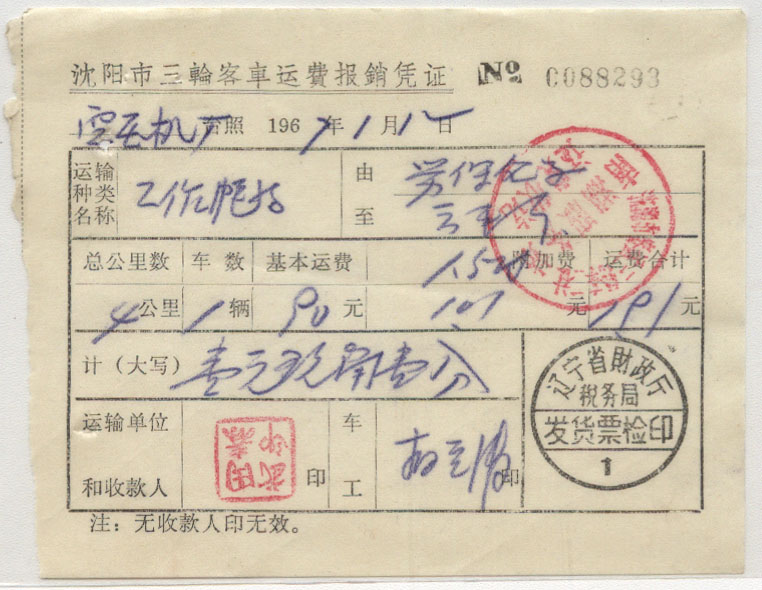 沈阳市三輪客車运费报銷凭证 № 0088293
空压机厂 台照 1967年1月1 日
运输种类名称 工作帽 由 劳保
至
总公里数 车数 基本运费 附加费 运费合计
4公里 1辆 90元 1.01元 1.91元
计（大写） 壹元玖角壹分
运输单位和收款人 印 车工 印
辽宁省財政厅
税务局
发货票检印
1
注：无收款人印无效。